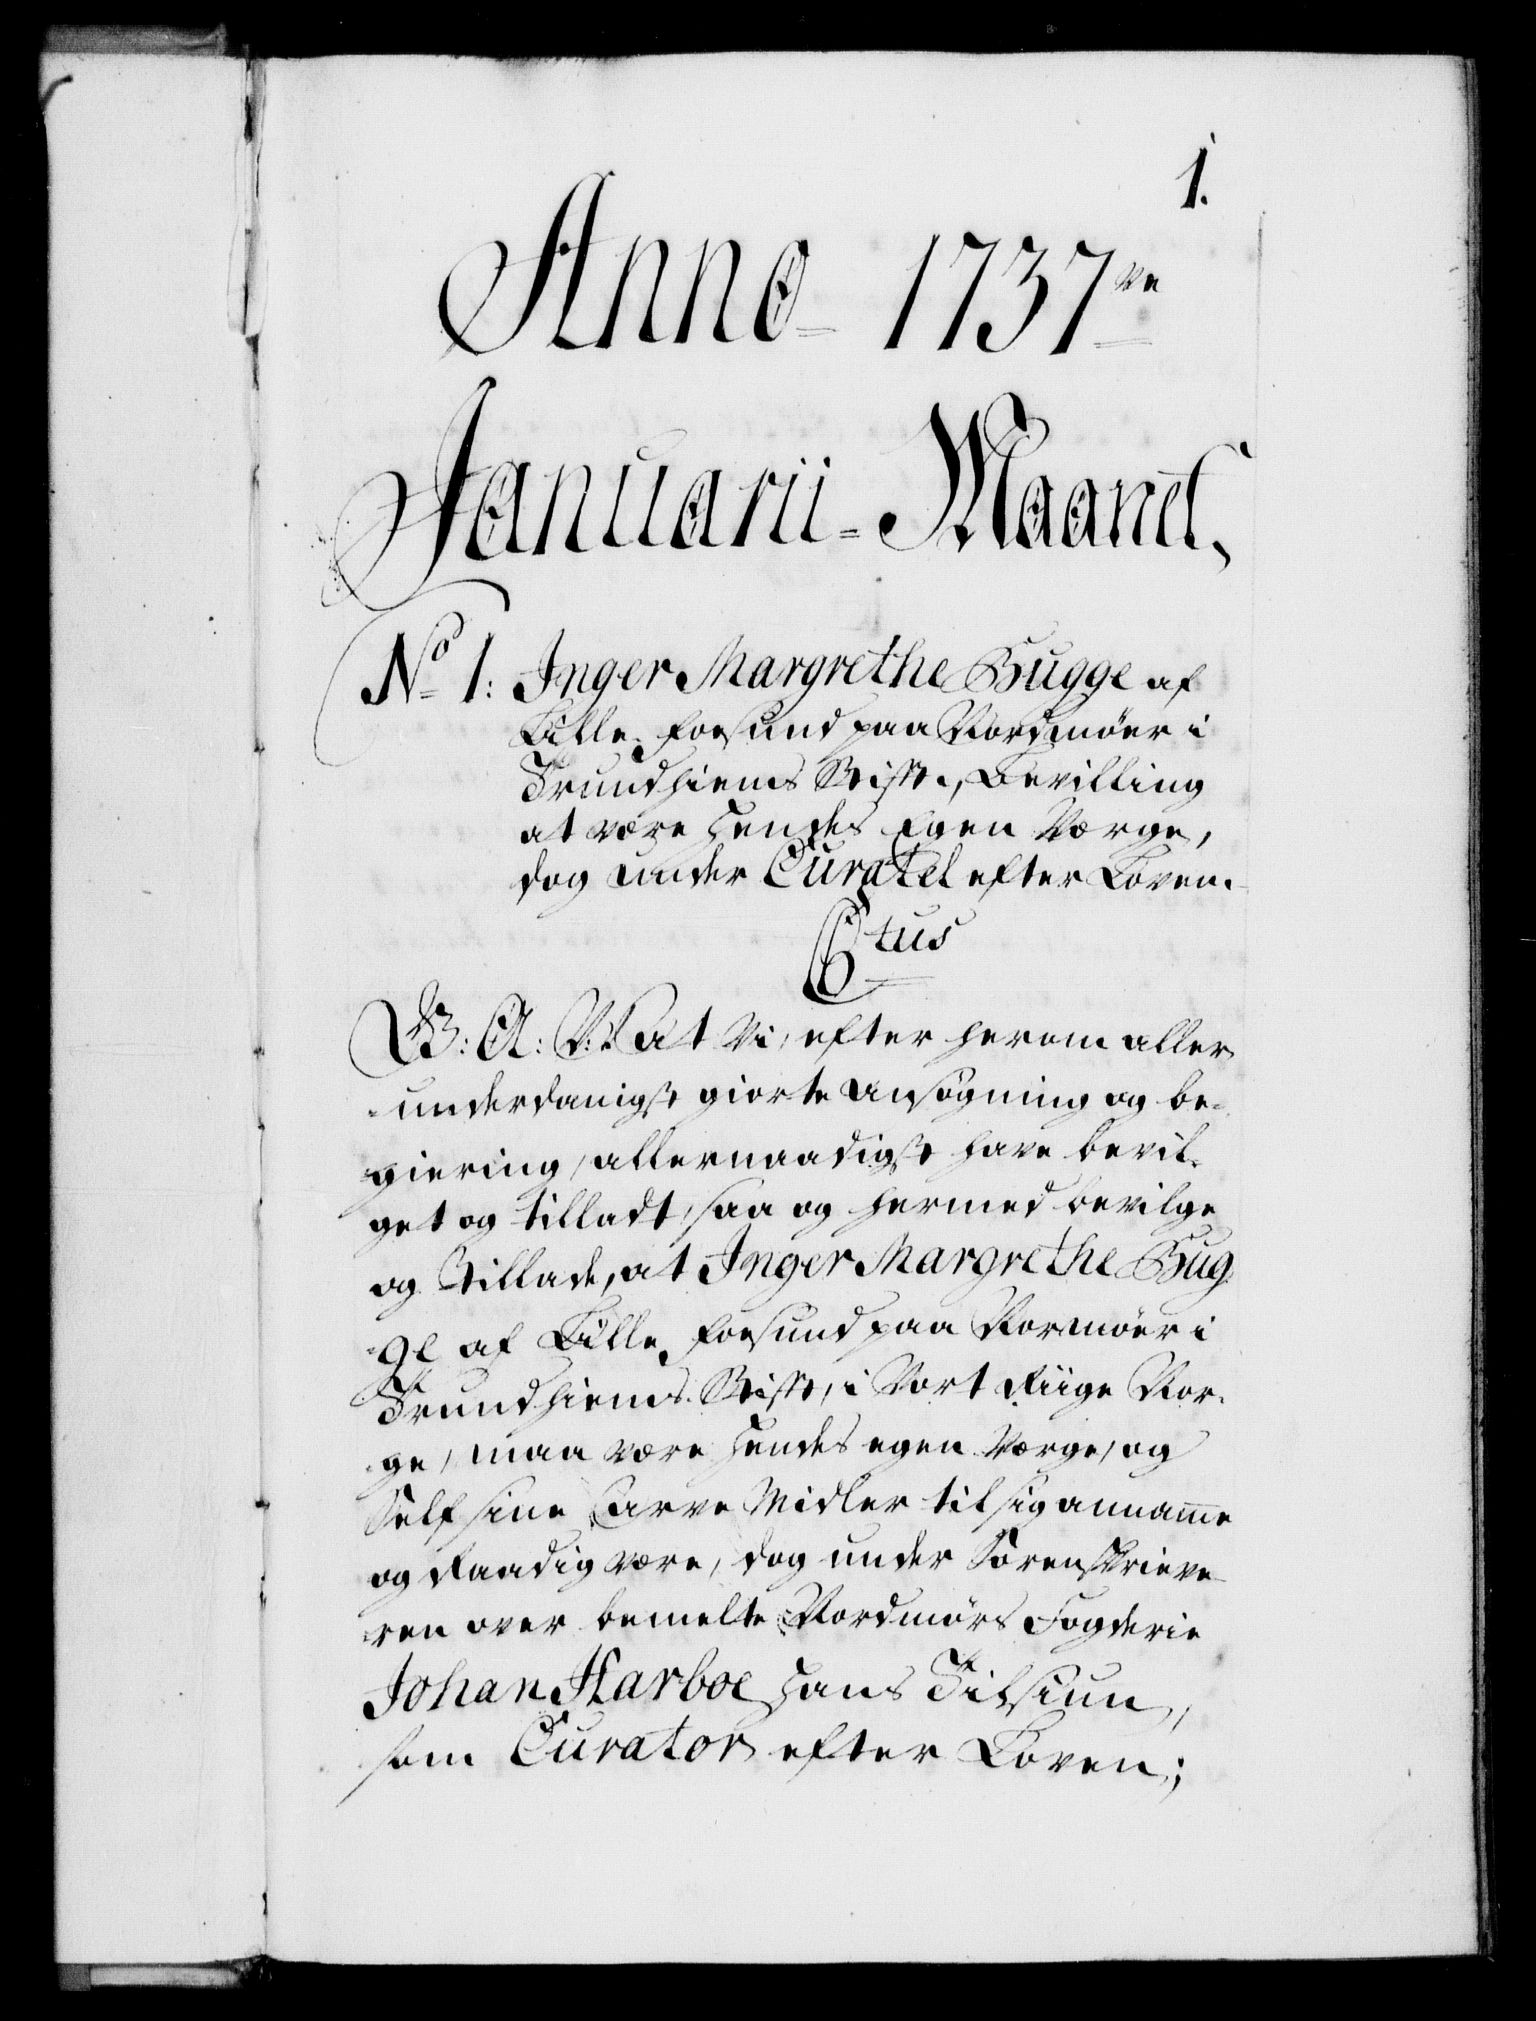 1.
Anno 1737ve
Januarii Maanet.
No 1: Inger Margrethe Bugge af
Lille Foesund paa Nordmöer i
Trundhiems Stift, Bevilling
at være Hendes Egen Værge,
dog under Curatel efter Loven.
C6tus
G: A: V: at Vi, efter herom aller
underdanigst giorte Ansøgning og be-
giering, allernaadigst have bevil-
get og tilladt, saa og hermed bevilge
og Tillade, at Inger Margrethe Bug
ge af Lille Foesund paa Normöer i
Trundhiems Stift, i Vort Riige Nor-
ge, maa være Hendes egen Værge, og
Self sine Arve Midler til sig annamme
og Raadig være, dog under Sorenskrive-
ren over bemelte Nordmørs Fogderie
Johan Harboe Hans Tilsiun,
som Curator efter Loven;